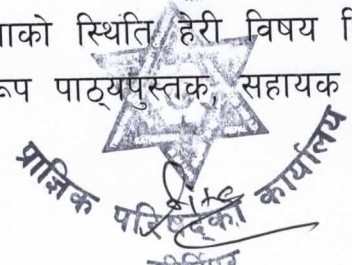 ाको स्थिति हेरी विषय
रूप पाठ्यपुस्तक, सहायक
प्राज्ञिक परिषद्को कार्यालय
कीर्तिपुर